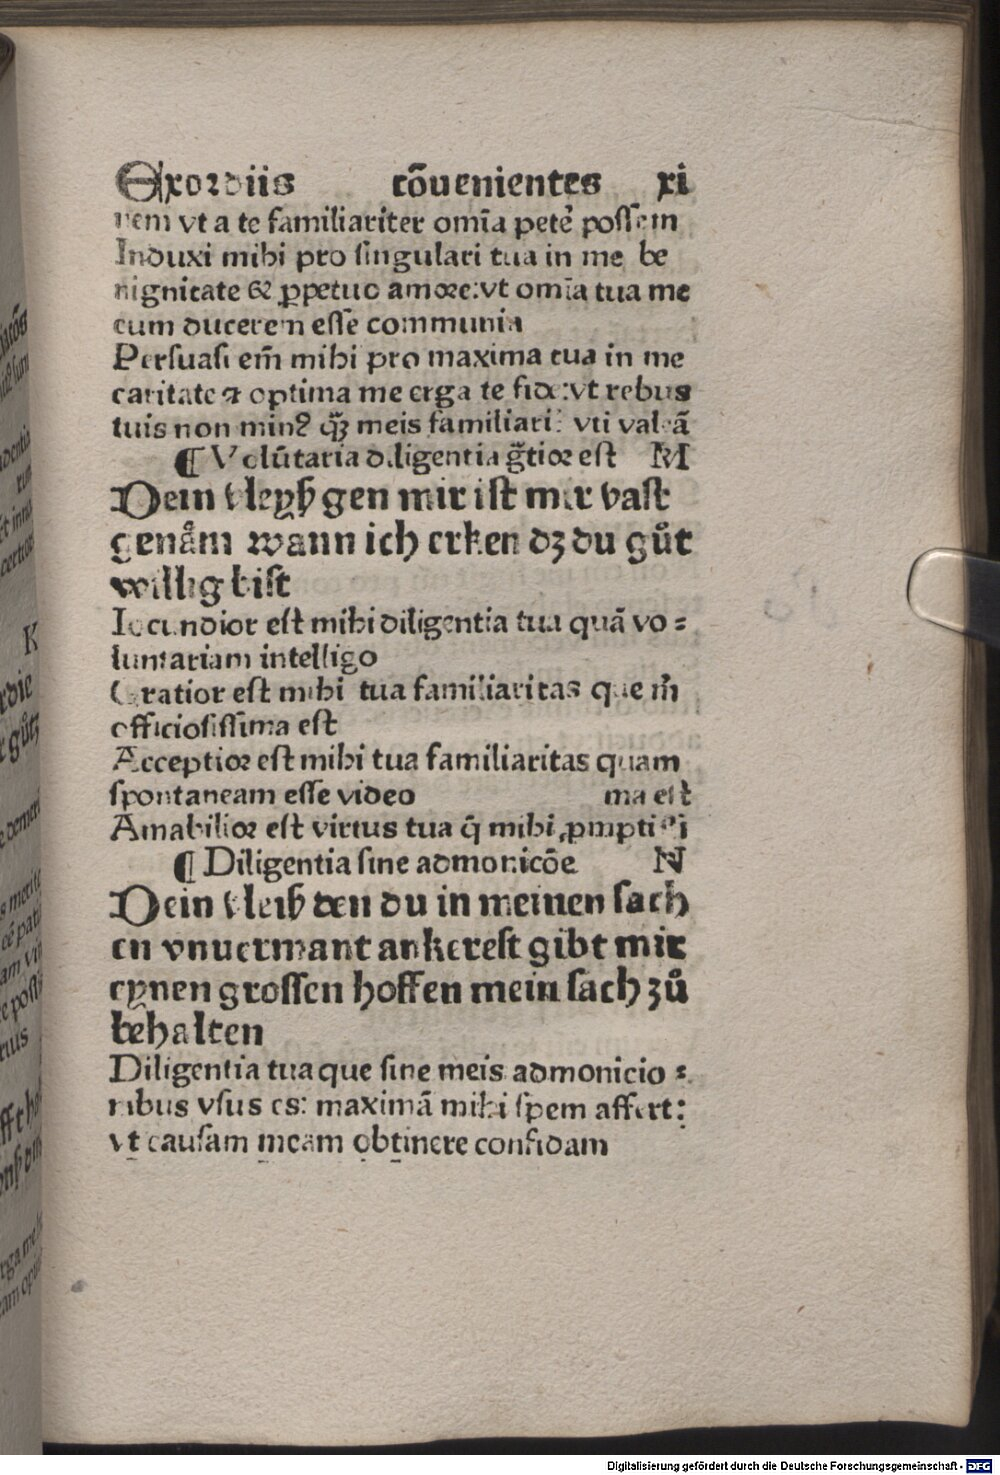 Exordiis cōuenientes xi
rem vt a te familiariter omīa petē possem
Induxi mihi pro singulari tua in me be
nignitate & ꝑpetuo amore: vt omīa tua me
cum ducerem esse communia
Persuasi em̄ mihi pro maxima tua in me
caritate ⁊ optima me erga te fide: vt rebus
tuis non minꝰ qȝ̄ meis familiari: vti valeā
¶ Volūtaria diligentia g̃tior est M
Dein vleyß gen mir ist mir vast
genåm wann ich erken dz du gůt
willig bist
Iocundior est mihi diligentia tua quā vo⸗
luntariam intelligo
Gratior est mihi tua familiaritas que m̄
officiosissima est
Acceptior est mihi tua familiaritas quam
spontaneam esse video ma est
Amabilior est virtus tua q̄ mihi ꝓmptissi
¶ Diligentia sine admonicōe N
Dein vleiß den du in meinen sach
en vnuermant ankerest gibt mir
eynen grossen hoffen mein sach zů
behalten
Diligentia tua que sine meis admonicio⸗
nibus vsus es: maximā mihi spem affert:
vt causam meam obtinere confidam
iatōs
K
rdie
rius
Digitalisierung gefördert durch die Deutsche Forschungsgemeinschaft - DFG